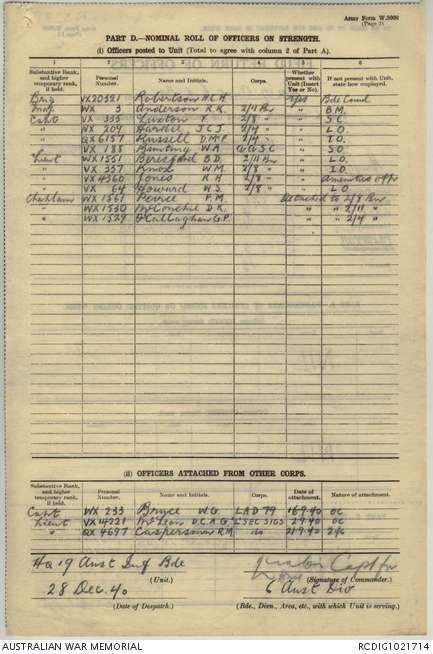 Army Form W.3008
(Page 2)
PART D.—NOMINAL ROLL OF OFFICERS ON STRENGTH.
(i) Officers posted to Unit (Total to agree with column 2 of Part A).
1 2 3 4 5 6
Substantive Rank, and higher temporary rank, if held. Personal Number. Name and Initials. Corps. Whether present with Unit (Insert Yes or No). If not present with Unit, state how employed.
Brig VX20321 Robertson H.C.H. Yes Bde Comd
Maj WX 3 Anderson R.K. 2/11 Bn " B.M.
Capt VX 335 Luxton T. 2/8 " " S.C.
" NX 204 Hardie J.C.J. 2/4 " " L.O.
" QX 6157 Russell D.McP 2/4 " " I.O.
" VX 188 Bunting W.A. A.A.S.C. " S.O.
Lieut WX 1551 Beresford B.D. 2/11 Bn " L.O.
" VX 357 Knox W.M. 2/8 " " I.O.
" VX 4360 Jones R.H. 2/8 " " Amenities Offr
" VX 64 Howard W.S. 2/8 " " L.O
Chaplain WX 1561 F.M. Attached to 2/8 Bn
" WX 1530 McConchie D.K. " " 2/11 "
" WX 1529 O'Callaghan G.P. " " 2/4 "
(ii) OFFICERS ATTACHED FROM OTHER CORPS.
Substantive Rank, and higher temporary rank, if held. Personal Number. Name and Initials. Corps. Date of attachment. Nature of attachment.
Capt WX 233 Bryce W.G. LAD 79 16.9.40 OC
Lieut VX 14221 McLean D.C.A.G. SEC SIGS 2.9.40 OC
" QX 4697 Casperson R.M. do 21.9.40 2i/c
HQ 19 Aust Inf Bde
(Unit.)
Capt for
(Signature of Commander.)
28 Dec 40
(Date of Despatch.)
6 Aust Div
(Bde., Divn., Area, etc., with which Unit is serving.)
AUSTRALIAN WAR MEMORIAL
RCDIG1021714